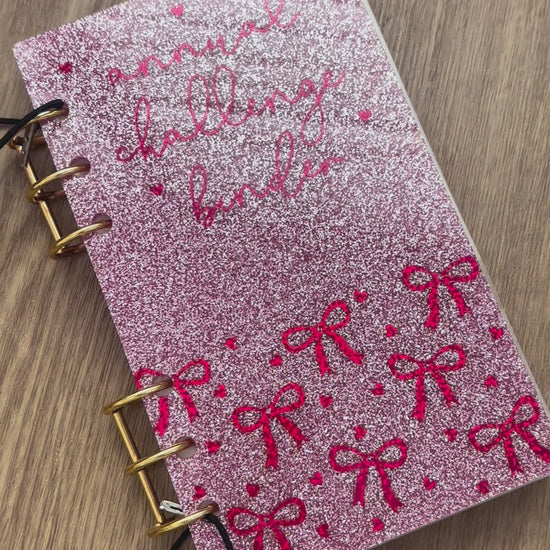 annual
challenge
binder